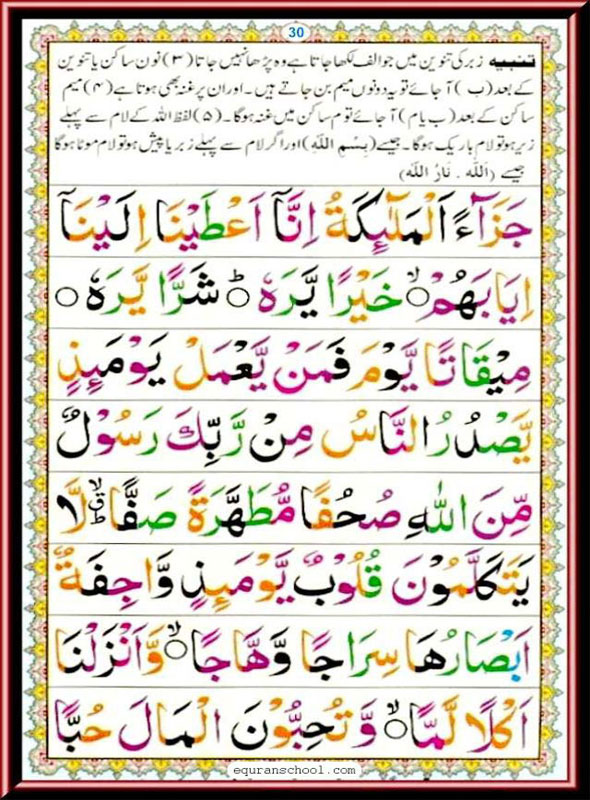 30
تنبیہ زبر کی تنوین میں جو الف لکھا جاتا ہے وہ پڑھا نہیں جاتا (۳) نون ساکن یا تنوین
کے بعد (ب) آ جائے تو یہ دونوں میم بن جاتے ہیں۔ اور ان پر غنہ بھی ہوتا ہے (۴) میم
ساکن کے بعد (ب یا م) آ جائے تو م ساکن میں غنہ ہوگا۔ (۵) لفظ اللہ کے لام سے پہلے
زیر ہو تو لام باریک ہوگا۔ جیسے (بِسْمِ اللّٰهِ) اور اگر لام سے پہلے زبر یا پیش ہو تو لام موٹا ہوگا
جیسے (اَللّٰهُ . نَارُ اللّٰهِ)
جَزَآءً اَلْمَلٰٓئِكَةُ اِنَّاۤ اَعْطَيْنَا اِلَيْنَاۤ
اِيَابَهُمْ ۙ خَيْرًا يَّرَهٗ ؕ شَرًّا يَّرَهٗ ○
مِيْقَاتًا يَّوْمَ فَمَنْ يَّعْمَلْ يَوْمَئِذٍ
يَّصْدُرُ النَّاسُ مِنْ رَّبِّكَ رَسُوْلٌ
مِّنَ اللّٰهِ صُحُفًا مُّطَهَّرَةً صَفًّا ۙؕق لَّا
يَتَكَلَّمُوْنَ قُلُوْبٌ يَّوْمَئِذٍ وَّاجِفَةٌ
اَبْصَارُهَا سِرَاجًا وَّهَّاجًا ۙ وَّاَنْزَلْنَا
اَكْلًا لَّمًّا ۙ وَّ تُحِبُّوْنَ الْمَالَ حُبًّا
equranschool.com